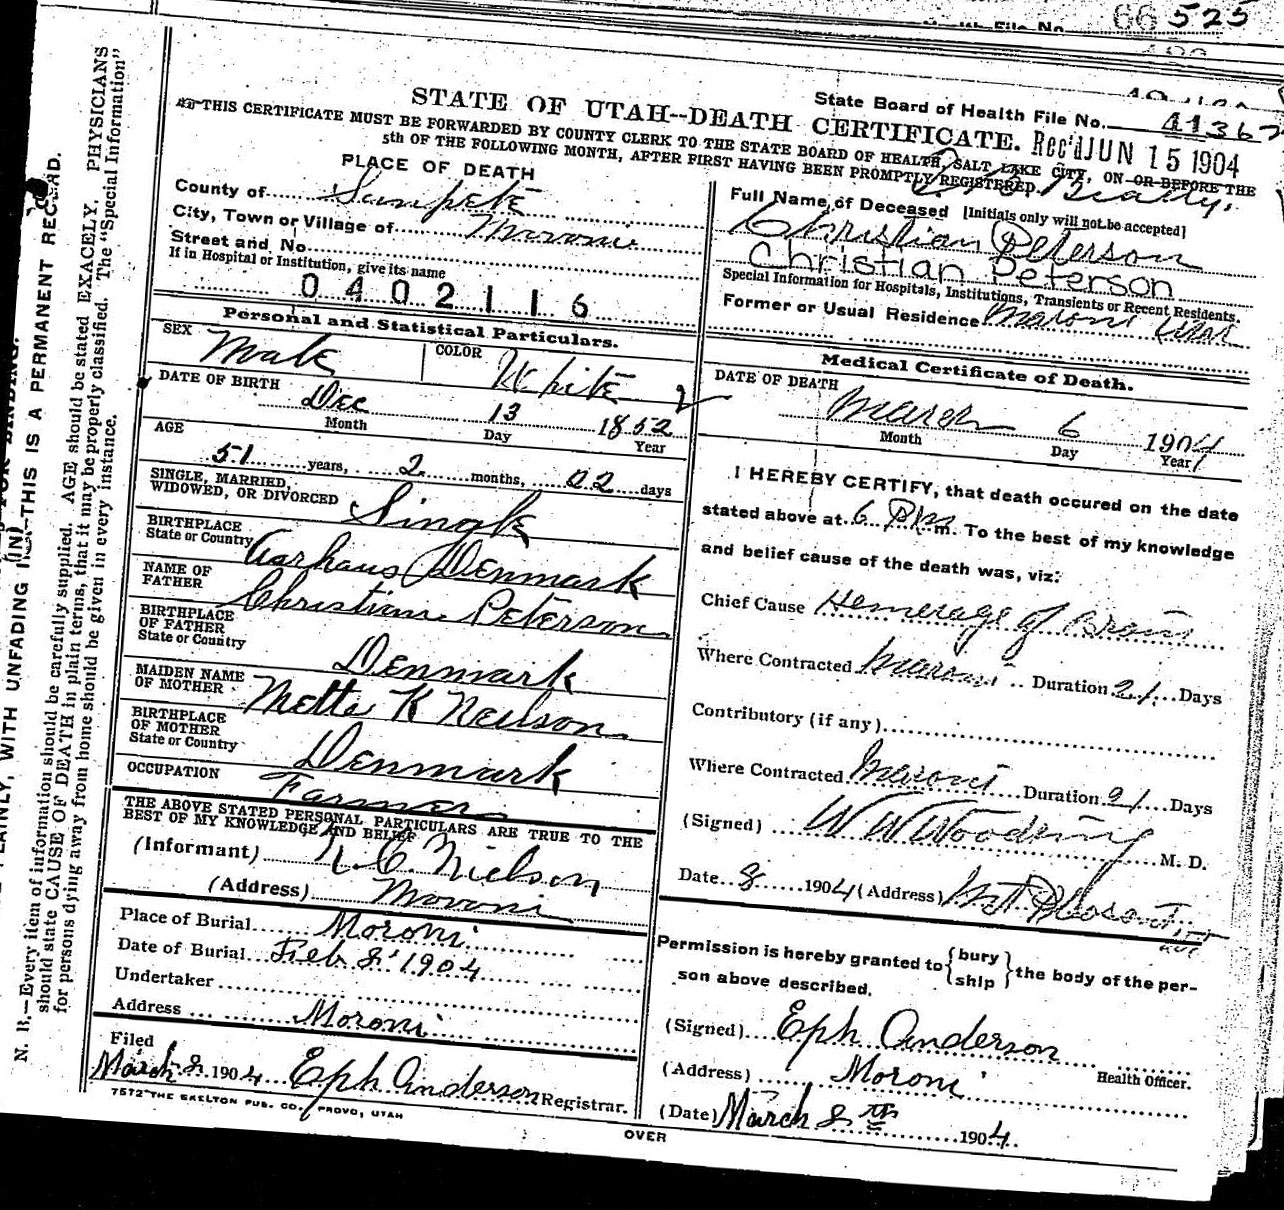 Health File No. 66 525
State Board of Health File No. 41367
STATE OF UTAH--DEATH CERTIFICATE.
Rec'd JUN 15 1904
THIS CERTIFICATE MUST BE FORWARDED BY COUNTY CLERK TO THE STATE BOARD OF HEALTH, SALT LAKE CITY, ON OR BEFORE THE
5th OF THE FOLLOWING MONTH, AFTER FIRST HAVING BEEN PROMPTLY REGISTERED.
Beatty.
PLACE OF DEATH
County of Sanpete
City, Town or Village of Moroni
Street and No.
If in Hospital or Institution, give its name
0402116
Personal and Statistical Particulars.
SEX Male COLOR White
DATE OF BIRTH
Dec 13 1852
Month Day Year
AGE
51 years, 2 months, 22 days
SINGLE, MARRIED,
WIDOWED, OR DIVORCED Single
BIRTHPLACE
State or Country Aarhaus Denmark
NAME OF
FATHER Christian Peterson
BIRTHPLACE
OF FATHER
State or Country Denmark
MAIDEN NAME
OF MOTHER Metta K Neilson
BIRTHPLACE
OF MOTHER
State or Country Denmark
OCCUPATION Farmer
THE ABOVE STATED PERSONAL PARTICULARS ARE TRUE TO THE
BEST OF MY KNOWLEDGE AND BELIEF
(Informant) N. C. Nielson
(Address) Moroni
Place of Burial Moroni
Date of Burial Feb 8' 1904
Undertaker
Address Moroni
Filed
March 8 1904 Eph Anderson Registrar.
7572 THE SKELTON PUB. CO., PROVO, UTAH
OVER
Full Name of Deceased [Initials only will not be accepted]
Christian Peterson
Christian Peterson
Special Information for Hospitals, Institutions, Transients or Recent Residents.
Former or Usual Residence Moroni Utah
Medical Certificate of Death.
DATE OF DEATH
March 6 1904
Month Day Year
I HEREBY CERTIFY, that death occured on the date
stated above at 6 P.M. m. To the best of my knowledge
and belief cause of the death was, viz:
Chief Cause Hemerage of Brain
Where Contracted Moroni Duration 21 Days
Contributory (if any)
Where Contracted Moroni Duration 21 Days
(Signed) W W Woodring M. D.
Date 8 1904 (Address) Mt Pleasant
Permission is hereby granted to {bury
ship} the body of the per-
son above described.
(Signed) Eph Anderson
Health Officer.
(Address) Moroni
(Date) March 8th 1904
WITH UNFADING INK--THIS IS A PERMANENT RECORD.
N. B.—Every item of information should be carefully supplied. AGE should be stated EXACELY. PHYSICIANS
should state CAUSE OF DEATH in plain terms, that it may be properly classified. The "Special Information"
for persons dying away from home should be given in every instance.